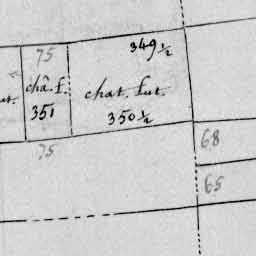 75
349½
châ. f.
chat. fut.
351
350½
75
68
65